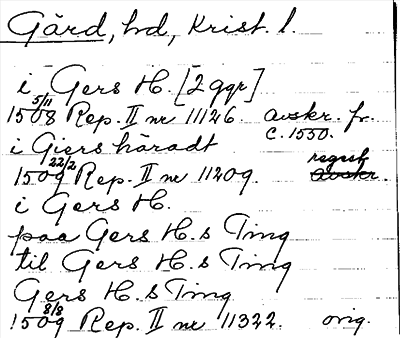 Gärd, hd, Krist. l.
i Gers H. [2 ggr]
1508 5/11 Rep. II nr 11126. avskr. fr. c. 1550.
i Giers häradt
1509 22/2 Rep. II nr 11209. regest avskr.
i Gers H.
paa Gers H.s Ting
til Gers H.s Ting
Gers H.s Ting
1509 8/8 Rep. II nr 11322. orig.